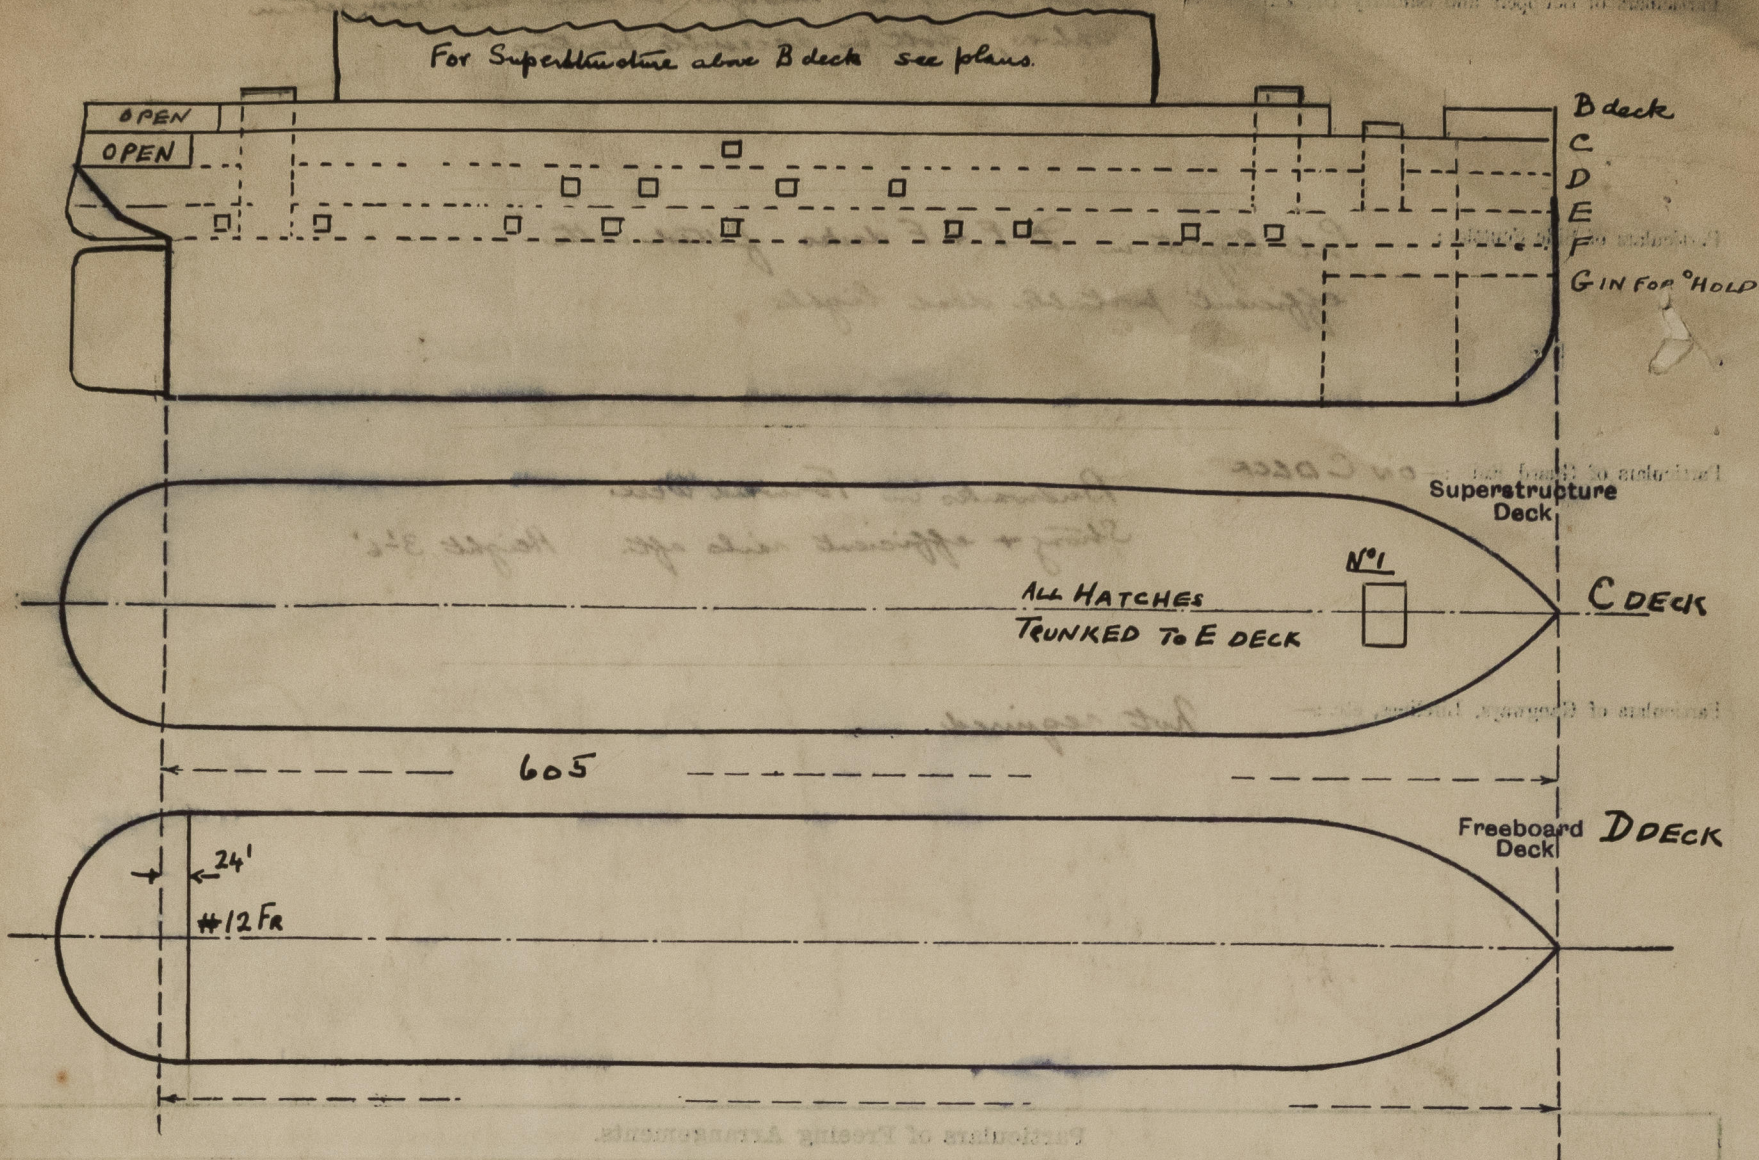 For Superstructure above B deck see plans.
OPEN
OPEN
B deck
C
D
E
F
G IN FOR'D HOLD
Superstructure
Deck
No 1
ALL HATCHES
TRUNKED TO E DECK
C DECK
605
Freeboard
Deck
D DECK
24'
#12 FR
Particulars of Freeing Arrangements.